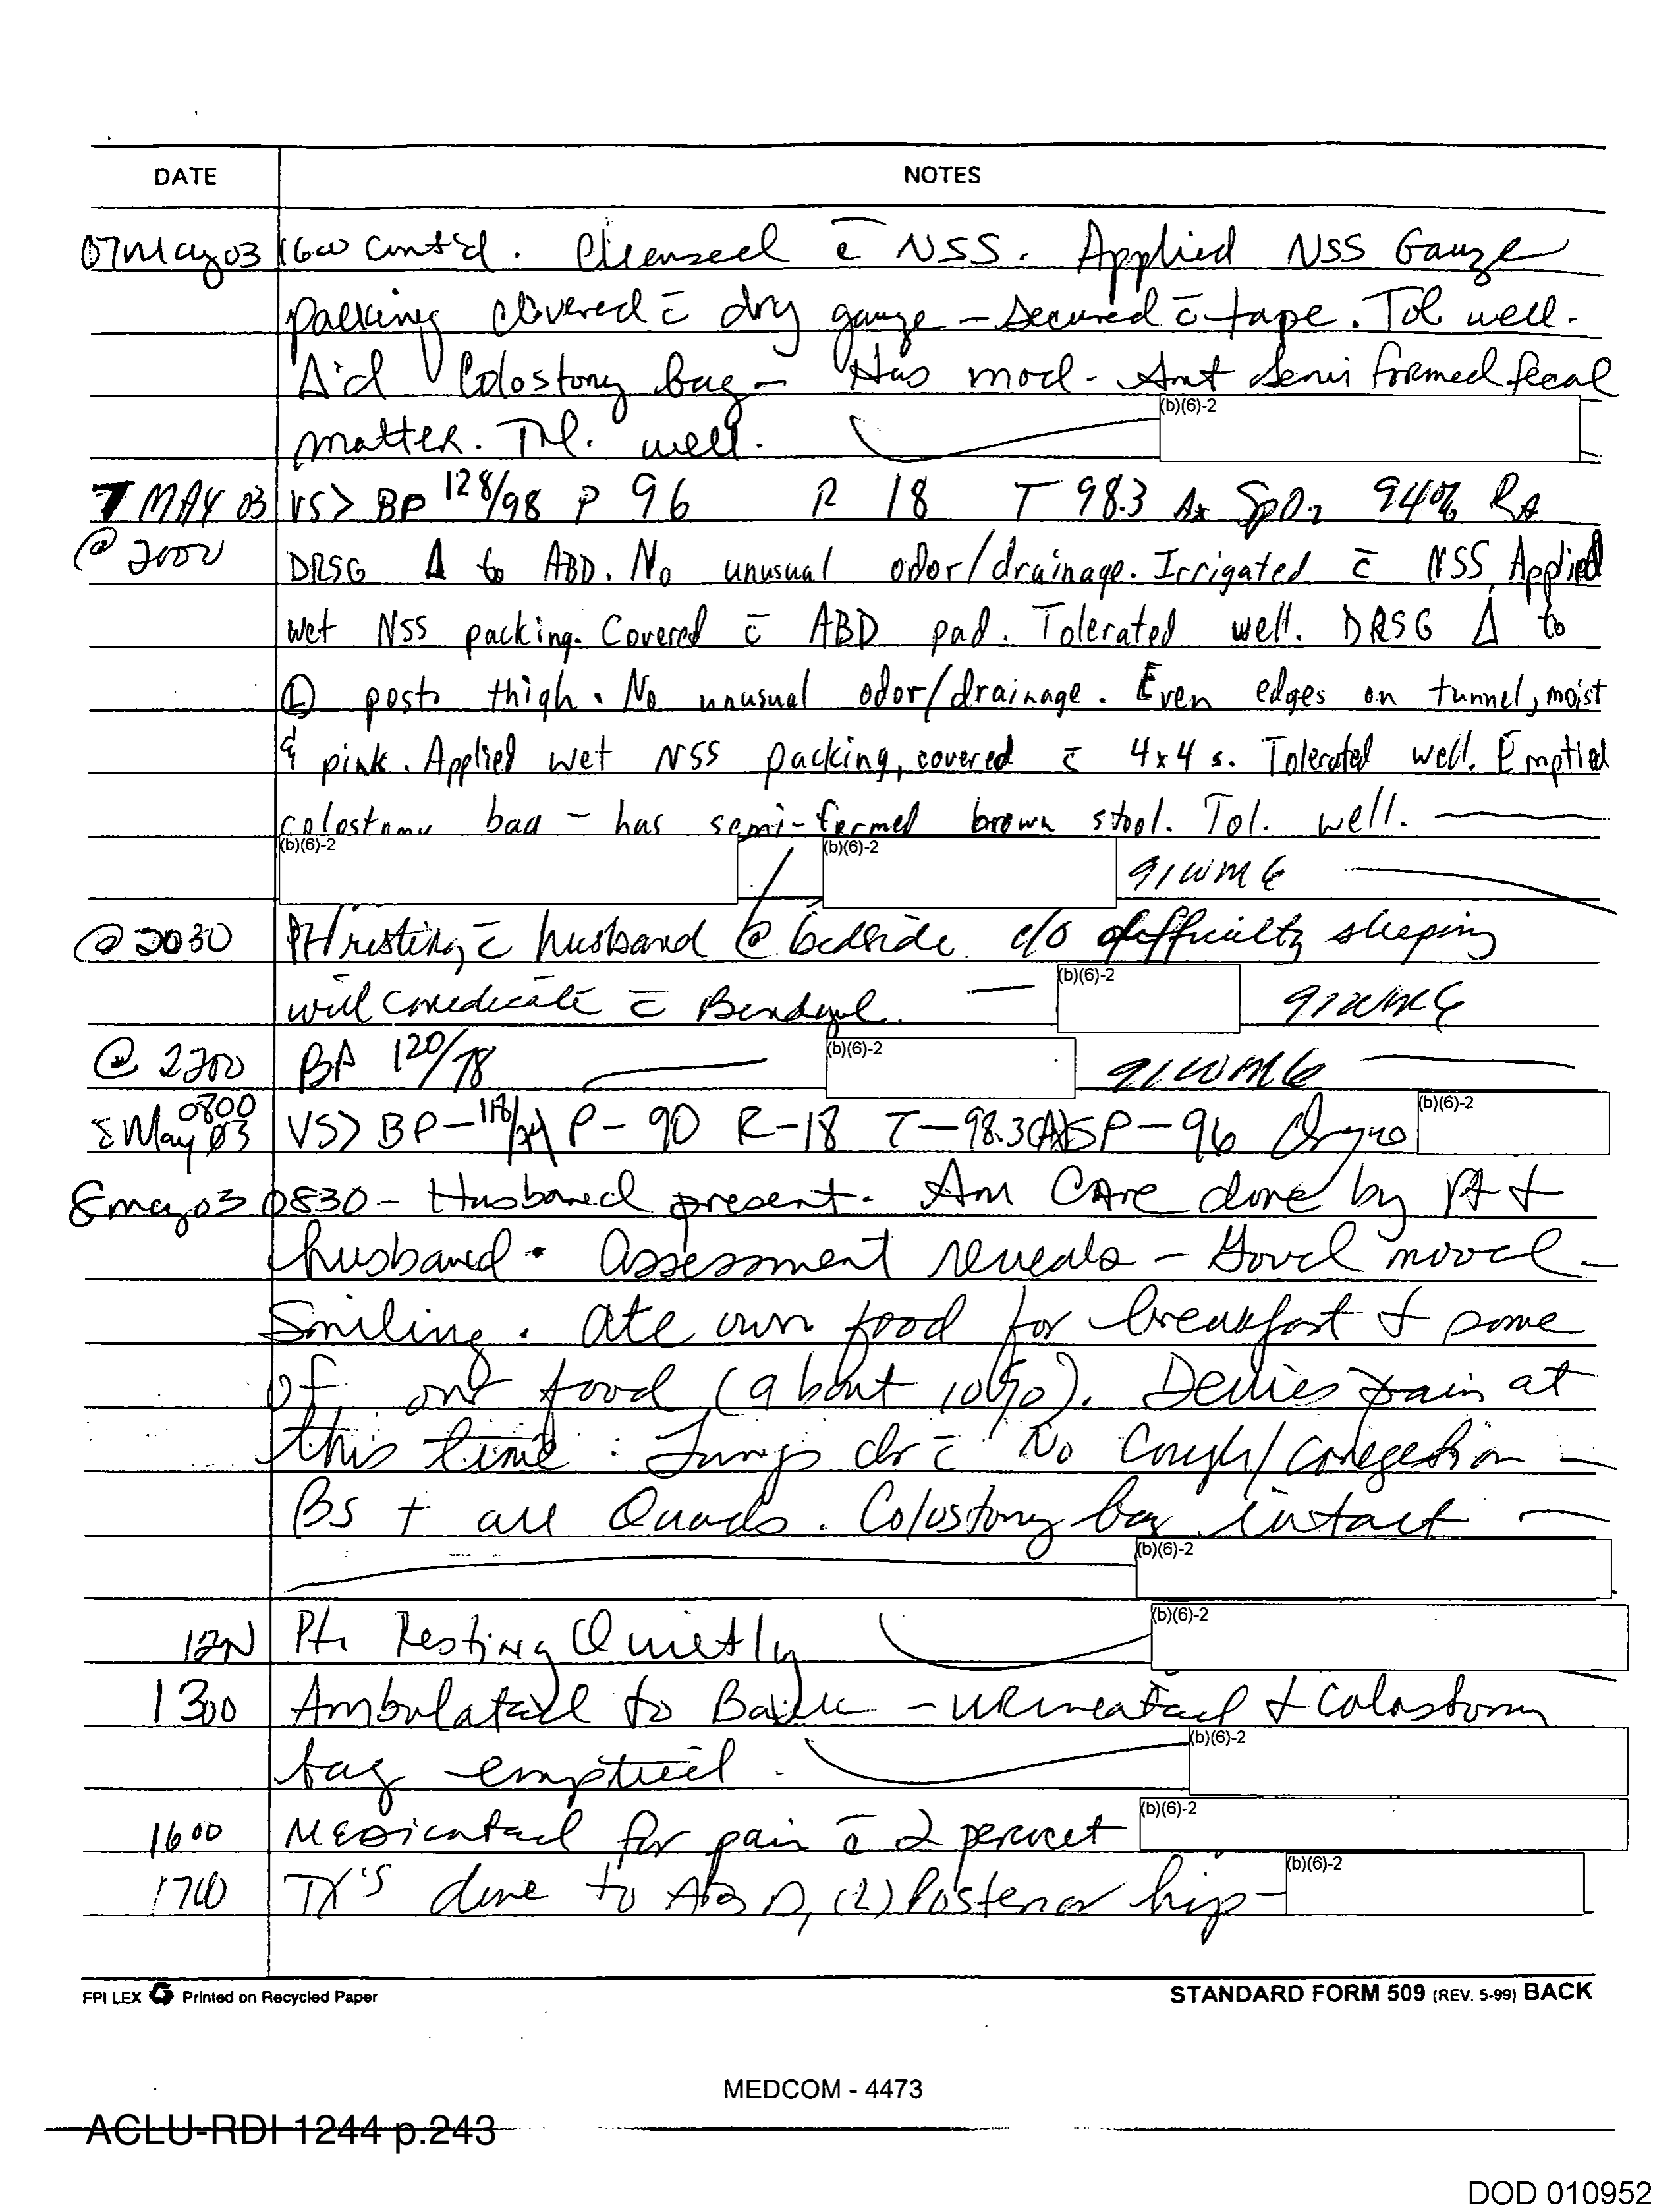 DATE NOTES
07May03 1600 Cont'd. Cleansed c̄ NSS. Applied NSS Gauze
packing covered c̄ dry gauze - secured c̄ tape. Tol well.
Δ'd Colostomy bag - Has mod. Amt semi formed fecal
matter. Tol. well.
(b)(6)-2
7 MAY 03 VS> BP 128/98 P 96 R 18 T 98.3 Ax SpO2 94% RA
@ 2000 DRSG Δ to ABD. No unusual odor/drainage. Irrigated c̄ NSS. Applied
wet NSS packing. Covered c̄ ABD pad. Tolerated well. DRSG Δ to
Ⓛ post. thigh. No unusual odor/drainage. Even edges on tunnel, moist
& pink. Applied wet NSS packing, covered c̄ 4x4s. Tolerated well. Emptied
colostomy bag - has semi-formed brown stool. Tol. well.
(b)(6)-2 / (b)(6)-2 91WM6
@ 2030 Pt resting c̄ husband @ bedside. c/o difficulty sleeping
will medicate c̄ Benadryl. - (b)(6)-2 91WM6
@ 2200 BP 120/78 (b)(6)-2 91WM6
0800
8 May 03 VS> BP-118/ P-90 R-18 T-98.3(AX) SP-96 (b)(6)-2
8may03 0830 - Husband present. Am CAre done by pt +
husband. Assessment reveals - Good mood -
Smiling. Ate own food for breakfast + some
of our food (about 10%). Denies pain at
this time. Lungs clr c̄ No Cough/congestion -
BS + all Quads. Colostomy bag intact -
(b)(6)-2
12N Pt. Resting Quietly (b)(6)-2
1300 Ambulated to - urineated + Colostomy
bag emptied. (b)(6)-2
1600 Medicated for pain c̄ 2 percocet (b)(6)-2
1700 TX's done to ABD, (L) Posterior hip - (b)(6)-2
FPI LEX Printed on Recycled Paper STANDARD FORM 509 (REV. 5-99) BACK
MEDCOM - 4473
ACLU-RDI 1244 p.243
DOD 010952